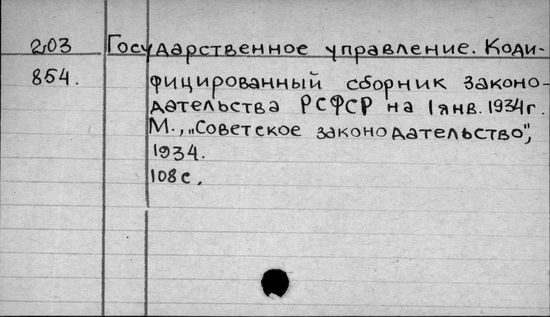 203 Государственное управление. Коди-
854. фицированный сборник законо-
дательства РСФСР на 1 янв. 1934 г.
М., „Советское законодательство",
1934.
108 с.